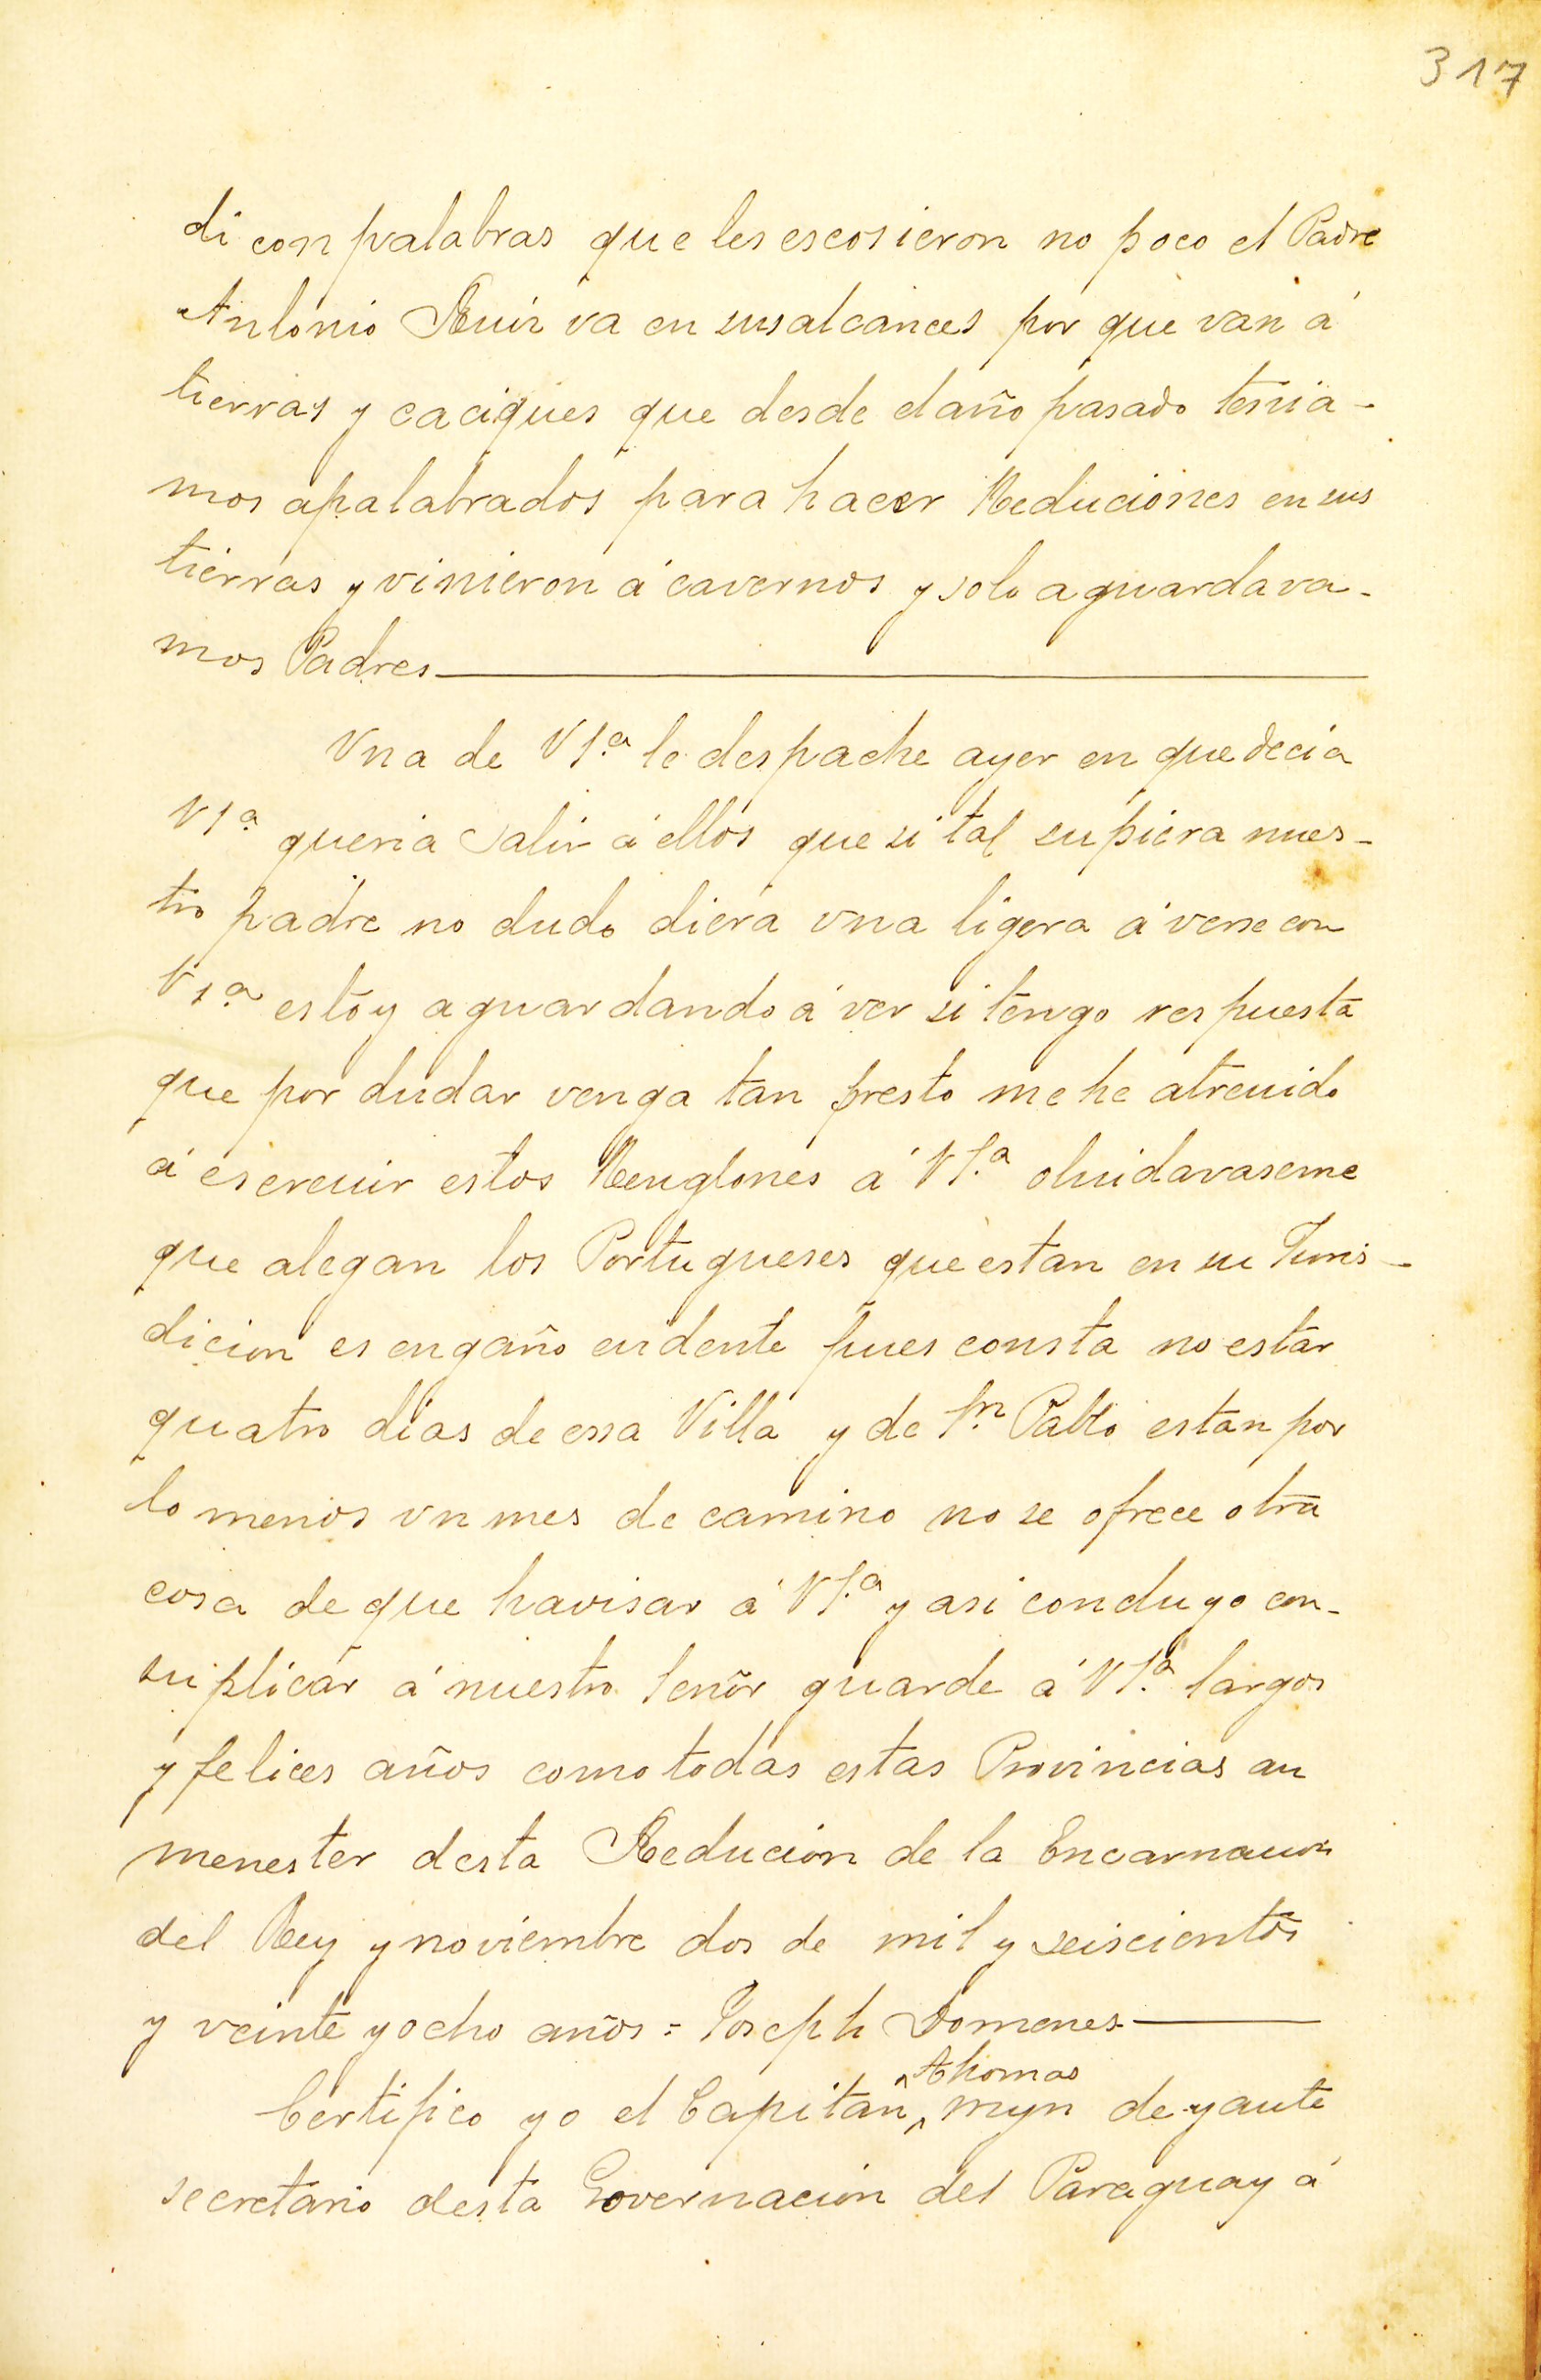 317
di con palabras que les escosieron no poco el Padre
Antonio Ruir va en sus alcances por que van á
tierras y caciques que desde el año pasado tenia-
mos apalabrados para hacer Reduciones en sus
tierras y vinieron á cavernos y solo aguardava-
mos Padres
Vna de VS.ª le despache ayer en que decia
VSª queria salir á ellos que si tal supiera nues-
tro padre no dudo diera vna ligera á verse con
VSª estoy aguardando á ver si tengo respuesta
que por dudar venga tan presto me he atreuido
á escreuir estos Renglones á VS.ª oluidavaseme
que alegan los Portugueses que estan en su Juris-
dicion es engaño euidente pues consta no estar
quatro dias de essa Villa y de Sn Pablo estan por
lo menos vn mes de camino no se ofrece otra
cosa de que havisar á VS.ª y asi concluyo con-
suplicar á nuestro Señor guarde á VS.ª largos
y felices años como todas estas Provincias an
menester desta Reducion de la Encarnacion
del Rey y noviembre dos de mil y seiscientos
y veinte y ocho años = Joseph Domenes
Certifico yo el Capitan Thomas myn de yante
secretario desta Governacion del Paraguay á